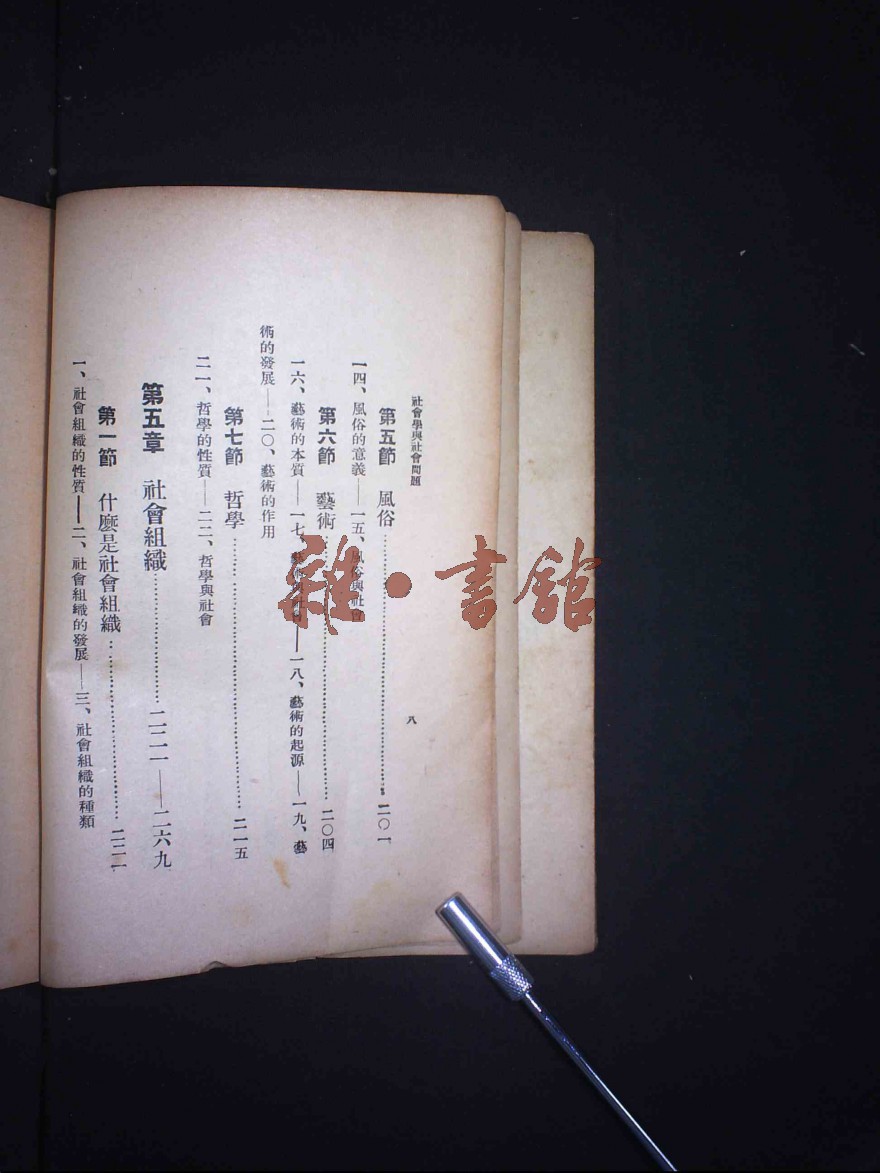 社會學與社會問題
八
第五節 風俗……二〇一
一四、風俗的意義——一五、風俗與社會
第六節 藝術……二〇四
一六、藝術的本質——一七、藝術與社會——一八、藝術的起源——一九、藝
術的發展——二〇、藝術的作用
第七節 哲學……二一五
二一、哲學的性質——二二、哲學與社會
第五章 社會組織……二二一——二六九
第一節 什麼是社會組織……二二一
一、社會組織的性質——二、社會組織的發展——三、社會組織的種類
雜·書館